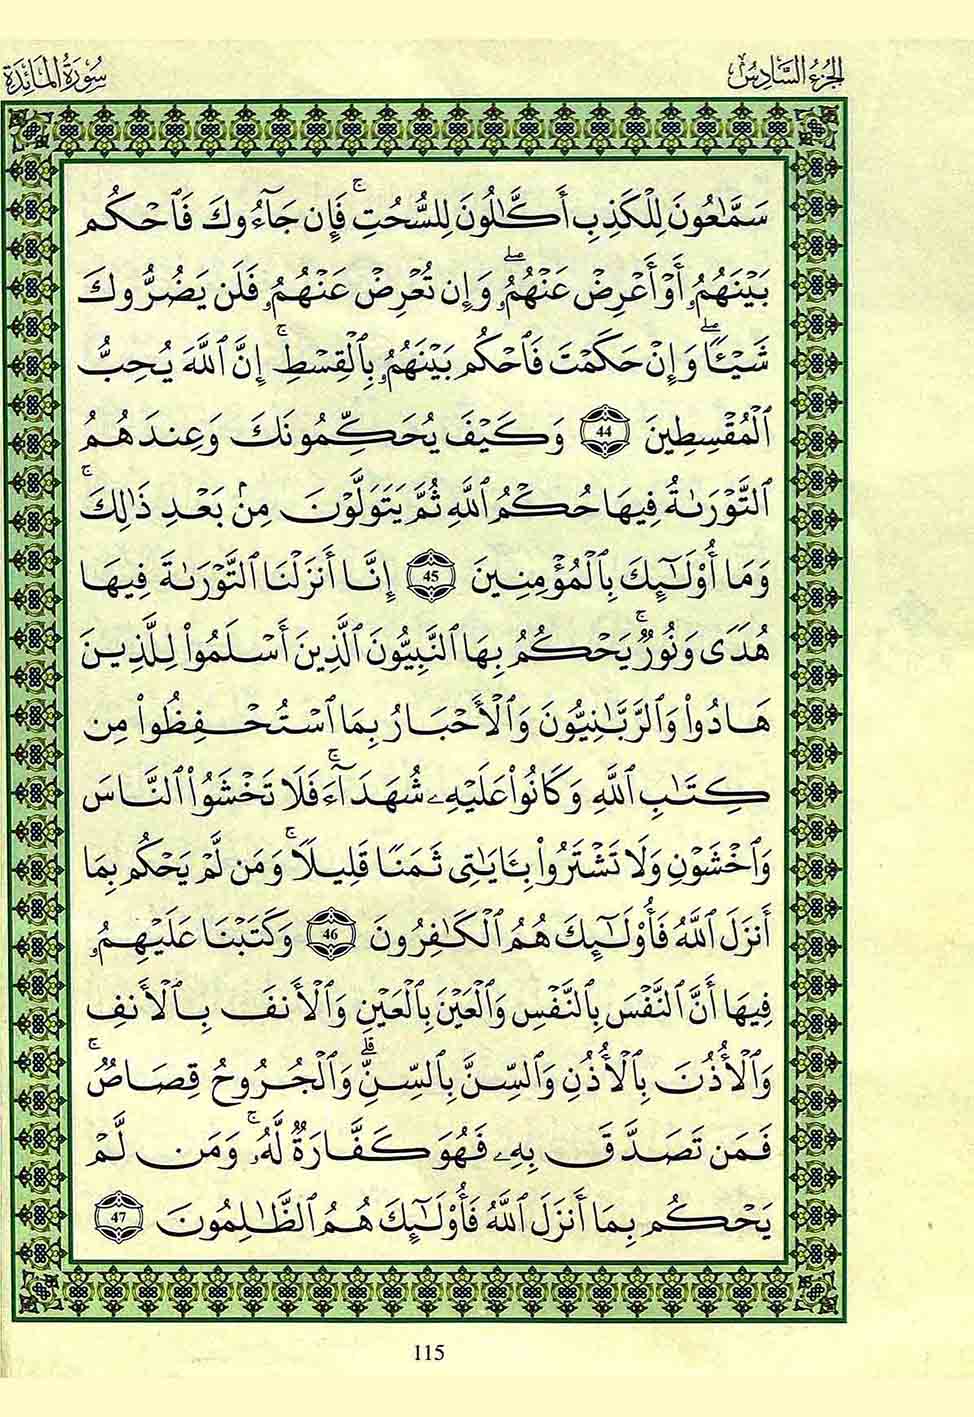 الجزء السادس
سورة المائدة
سَمَّٰعُونَ لِلْكَذِبِ أَكَّٰلُونَ لِلسُّحُتِۚ فَإِن جَآءُوكَ فَٱحْكُم
بَيْنَهُمُۥٓ أَوْ أَعْرِضْ عَنْهُمُۥۖ وَإِن تُعْرِضْ عَنْهُمُۥ فَلَن يَضُرُّوكَ
شَيْـًٔاۖ وَإِنْ حَكَمْتَ فَٱحْكُم بَيْنَهُمُۥ بِٱلْقِسْطِۚ إِنَّ ٱللَّهَ يُحِبُّ
ٱلْمُقْسِطِينَ 44 وَكَيْفَ يُحَكِّمُونَكَ وَعِندَهُمُ
ٱلتَّوْرَىٰةُ فِيهَا حُكْمُ ٱللَّهِ ثُمَّ يَتَوَلَّوْنَ مِنۢ بَعْدِ ذَٰلِكَۚ
وَمَآ أُو۟لَٰٓئِكَ بِٱلْمُؤْمِنِينَ 45 إِنَّآ أَنزَلْنَا ٱلتَّوْرَىٰةَ فِيهَا
هُدًى وَنُورٌۚ يَحْكُمُ بِهَا ٱلنَّبِيُّونَ ٱلَّذِينَ أَسْلَمُوا۟ لِلَّذِينَ
هَادُوا۟ وَٱلرَّبَّٰنِيُّونَ وَٱلْأَحْبَارُ بِمَا ٱسْتُحْفِظُوا۟ مِن
كِتَٰبِ ٱللَّهِ وَكَانُوا۟ عَلَيْهِۦ شُهَدَآءَۚ فَلَا تَخْشَوُا۟ ٱلنَّاسَ
وَٱخْشَوْنِ وَلَا تَشْتَرُوا۟ بِـَٔايَٰتِى ثَمَنًا قَلِيلًاۚ وَمَن لَّمْ يَحْكُم بِمَآ
أَنزَلَ ٱللَّهُ فَأُو۟لَٰٓئِكَ هُمُ ٱلْكَٰفِرُونَ 46 وَكَتَبْنَا عَلَيْهِمُۥ
فِيهَآ أَنَّ ٱلنَّفْسَ بِٱلنَّفْسِ وَٱلْعَيْنَ بِٱلْعَيْنِ وَٱلْأَنفَ بِٱلْأَنفِ
وَٱلْأُذُنَ بِٱلْأُذُنِ وَٱلسِّنَّ بِٱلسِّنِّۗ وَٱلْجُرُوحُ قِصَاصٌۚ
فَمَن تَصَدَّقَ بِهِۦ فَهُوَ كَفَّارَةٌ لَّهُۥۚ وَمَن لَّمْ
يَحْكُم بِمَآ أَنزَلَ ٱللَّهُ فَأُو۟لَٰٓئِكَ هُمُ ٱلظَّٰلِمُونَ 47
115